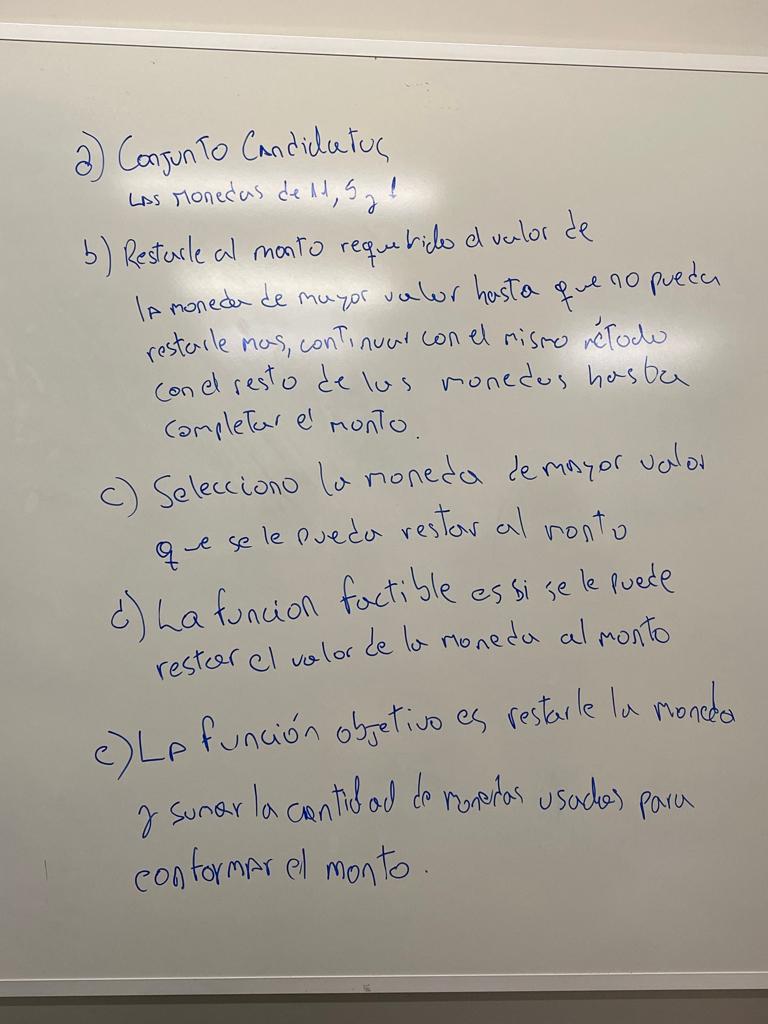 a) Conjunto Candidatos
Las Monedas de 11, 5 y 1
b) Restarle al monto requerido el valor de
la moneda de mayor valor hasta que no pueda
restarle mas, continuar con el mismo método
con el resto de las monedas hasta
completar el monto.
c) Selecciono la moneda de mayor valor
que se le pueda restar al monto
d) La funcion factible es si se le puede
restar el valor de la moneda al monto
e) La función objetivo es restarle la moneda
y sumar la cantidad de monedas usadas para
conformar el monto.